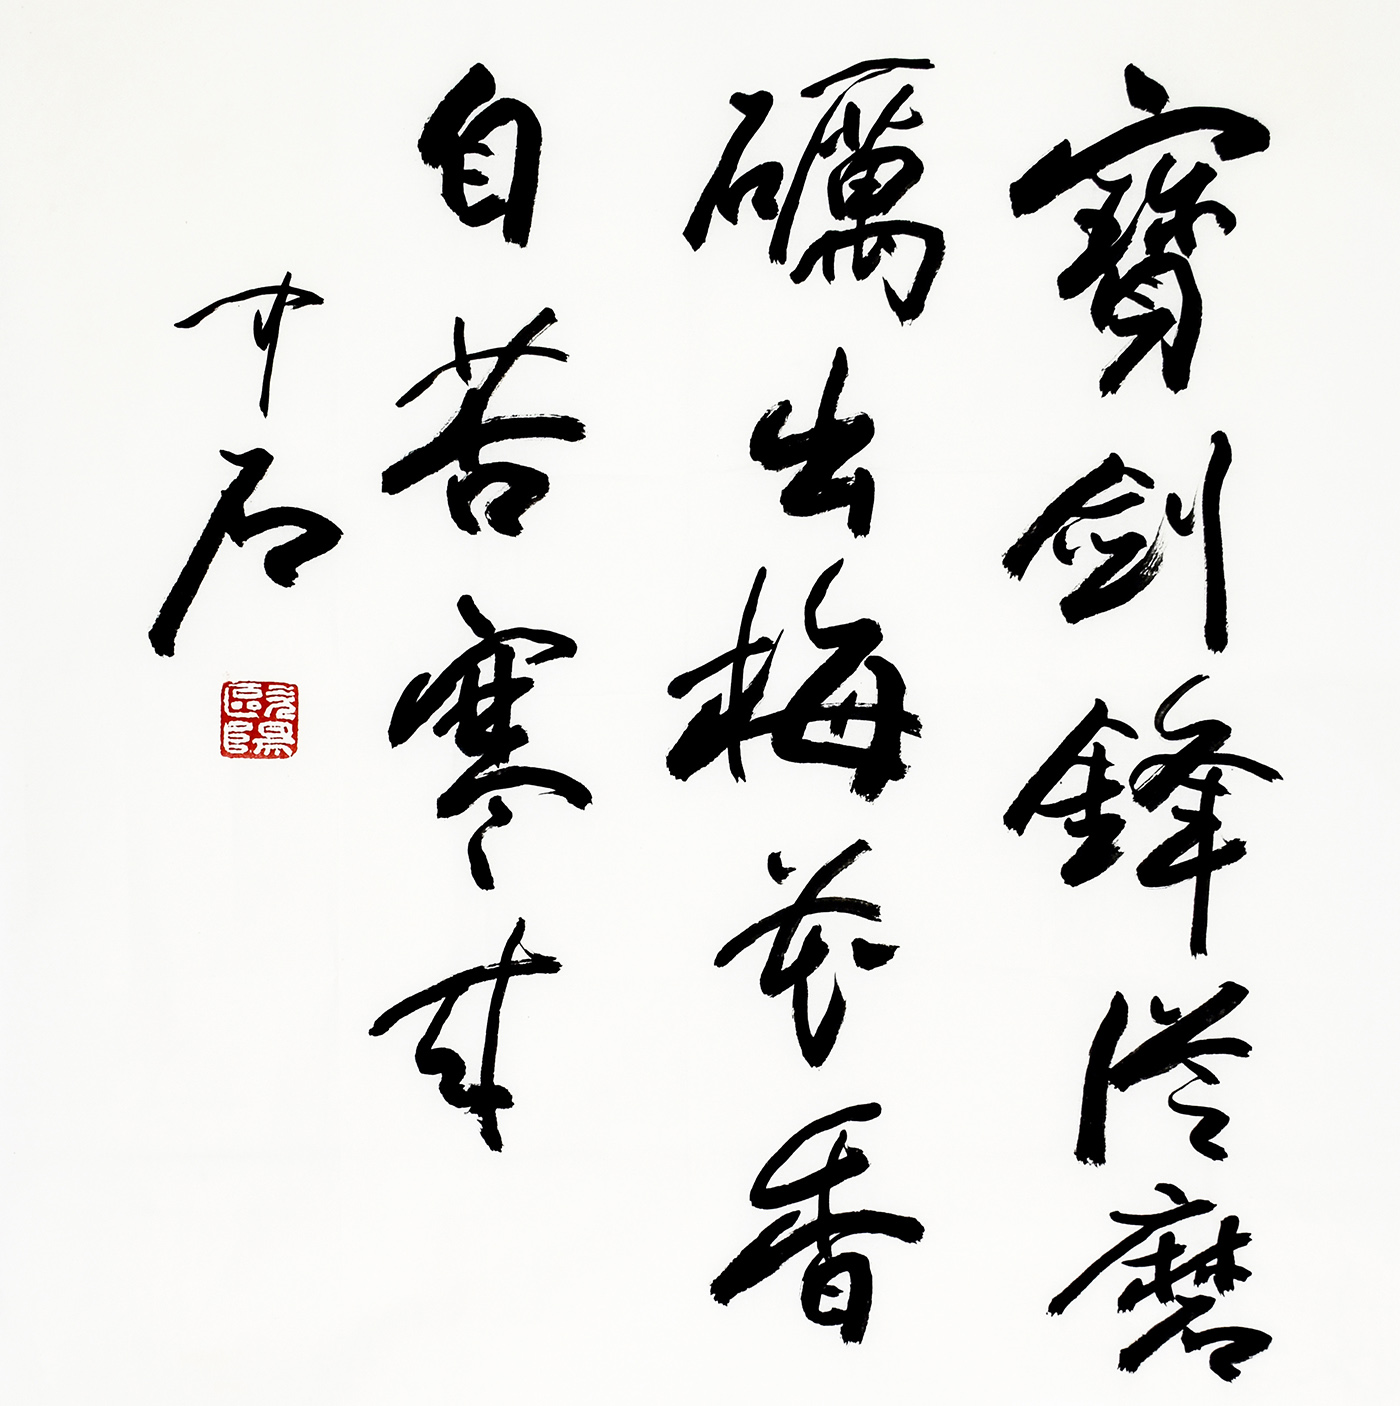 寶劍鋒從磨
礪出梅花香
自苦寒来
中石
歐陽